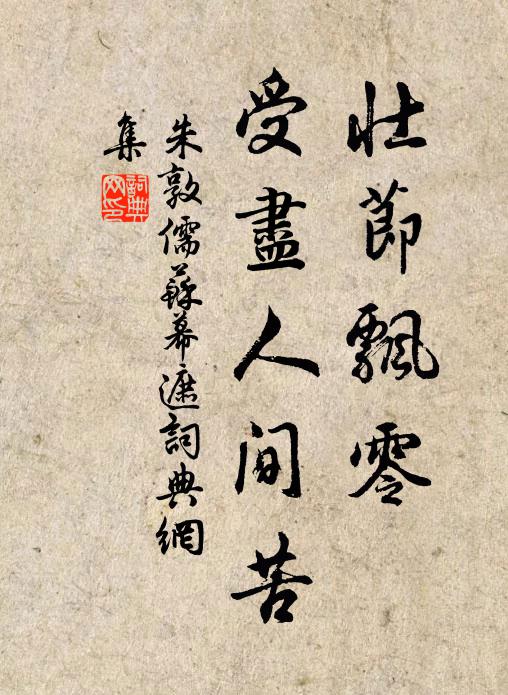 壯節飄零
受盡人間苦
朱敦儒蘇幕遮詞典網
集
詞典
网印